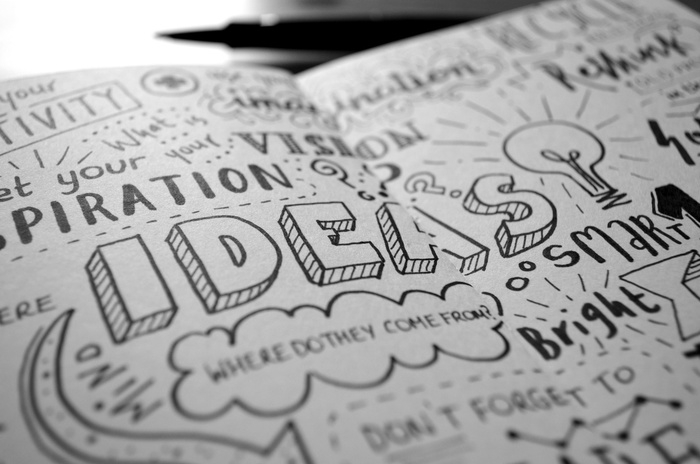 your
RECYCLE
TIVITY
imagination
Rethink
What is your VISION
et your
SPIRATION
???
IDEAS
SMART
ERE
WHERE DO THEY COME FROM?
Bright
MIND
DON'T FORGET TO